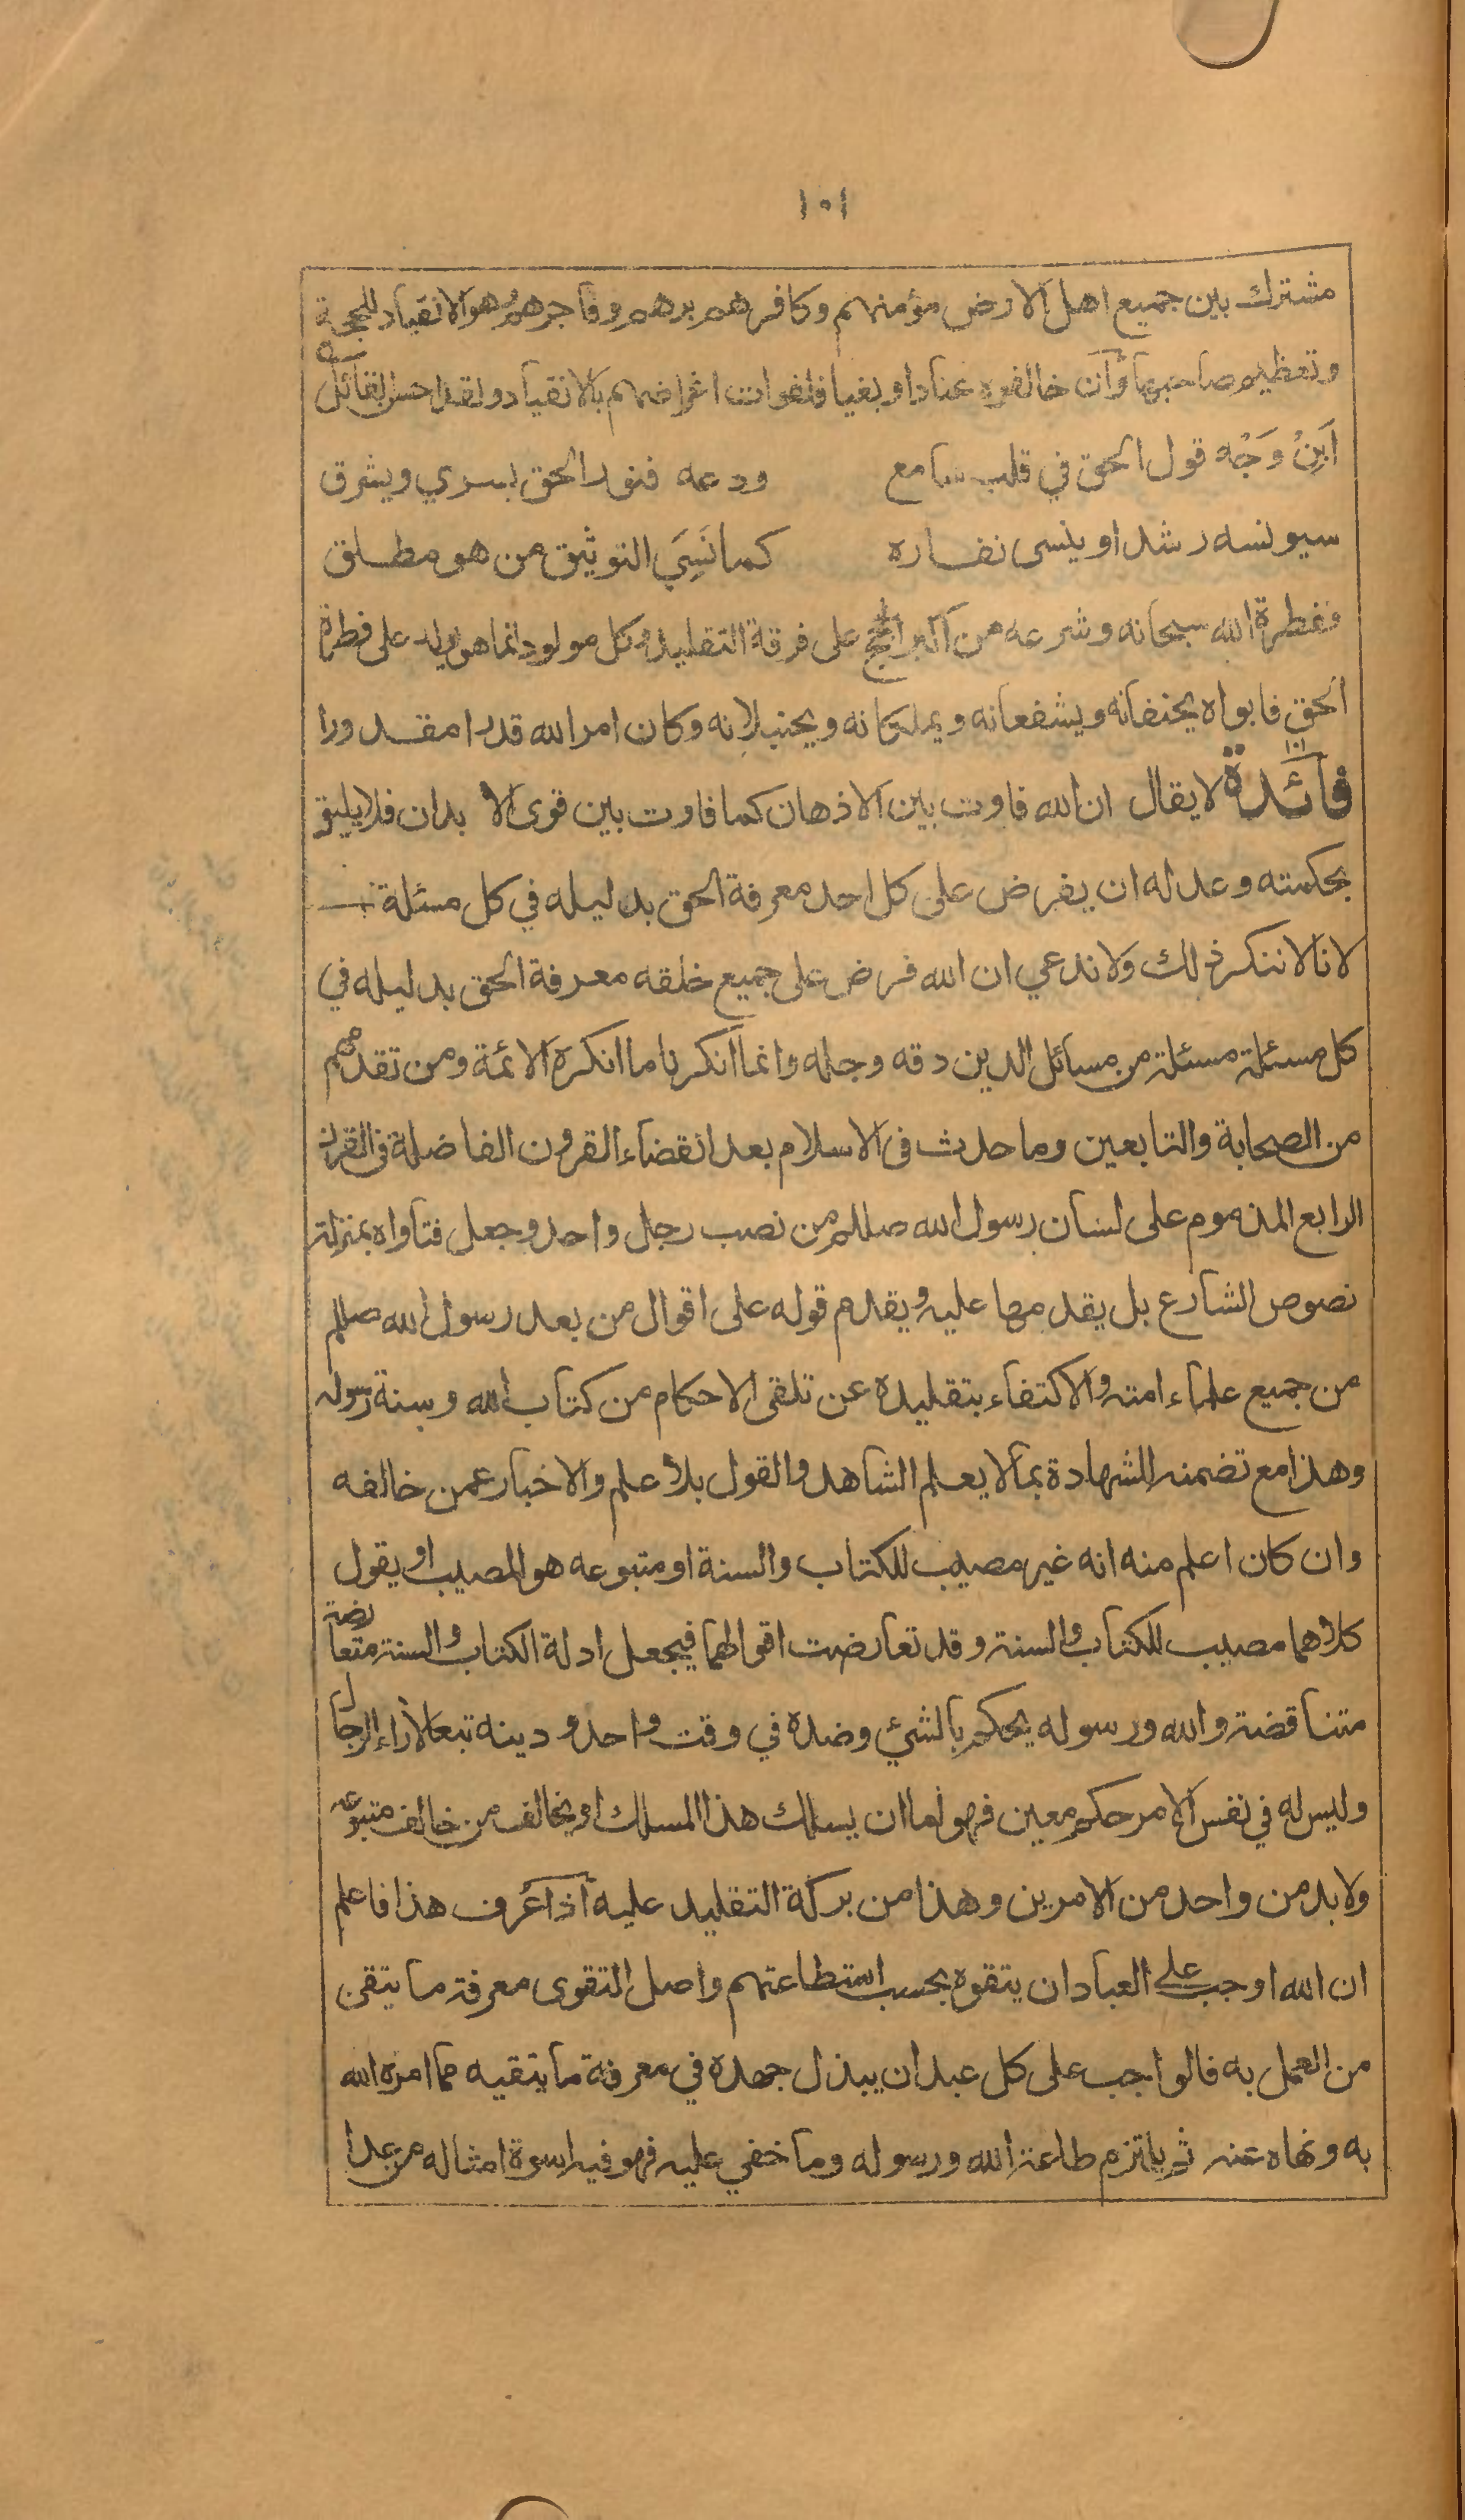 ١٠١
مشترك بين جميع اهل الارض مؤمنهم وكافرهم برهم وفاجرهم وهو الانقياد للحجة
وتعظيم صاحبها وان خالفوه عنادا وبغيا فلفوات اغراضهم بالانقياد ولقد احسن القائل
اَبِنْ وَجْه قول الحق في قلب سامع ودعه فنور الحق يسري ويشرق
سيونسه رشدا وينسى نفاره كما نَسِيَ التوثيق من هو مطلق
ففطرة الله سبحانه وشرعه من اكبر الحجج على فرقة التقليد وكل مولود انما هو يولد على فطرة
الحق فابواه يحنفانه ويشفعانه ويملكانه ويحنبلانه وكان امر الله قدرا مقدورا
فائدة ١٠١ لا يقال ان الله فاوت بين الاذهان كما فاوت بين قوى الا بدان فلا يليق
بحكمته وعدله ان يفرض على كل احد معرفة الحق بدليله في كل مسئلة
لانا لا ننكر ذلك ولا ندعي ان الله فرض على جميع خلقه معرفة الحق بدليله في
كل مسئلة مسئلة من مسائل الدين دقه وجله وانما انكرنا ما انكره الائمة ومن تقدمهم
من الصحابة والتابعين وما حدث فى الاسلام بعد انقضاء القرون الفاضلة فى القرن
الرابع المذموم على لسان رسول الله صللم من نصب رجل واحد وجعل فتاواه بمنزلة
نصوص الشارع بل يقدمها عليه ويقدم قوله على اقوال من بعد رسول الله صللم
من جميع علماء امته والاكتفاء بتقليده عن تلقى الاحكام من كتاب الله وسنة رسوله
وهذا مع تضمنه للشهادة بما لا يعلم الشاهد والقول بلا علم والاخبار عمن خالفه
وان كان اعلم منه انه غير مصيب للكتاب والسنة او متبوعه هو المصيب او يقول
كلاهما مصيب للكتاب والسنة وقد تعارضت اقوالهما فيجعل ادلة الكتاب والسنة متعارضة
متناقضة والله ورسوله يحكم بالشئ وضده في وقت واحد ودينه تبعا لآراء الرجال
وليس له في نفس الامر حكم معين فهو اما ان يسلك هذا المسلك او يخالف من خالف متبوعه
ولا بد من واحد من الامرين وهذا من بركة التقليد عليه اذا عُرف هذا فاعلم
ان الله اوجب على العباد ان يتقوه بحسب استطاعتهم واصل التقوى معرفة ما يتقى
من العمل به فالواجب على كل عبد ان يبذل جهده في معرفة ما يتقيه مما امره الله
به ونهاه عنه ثم يلتزم طاعة الله ورسوله وما خفي عليه فهو فيه اسوة امثاله من عدا